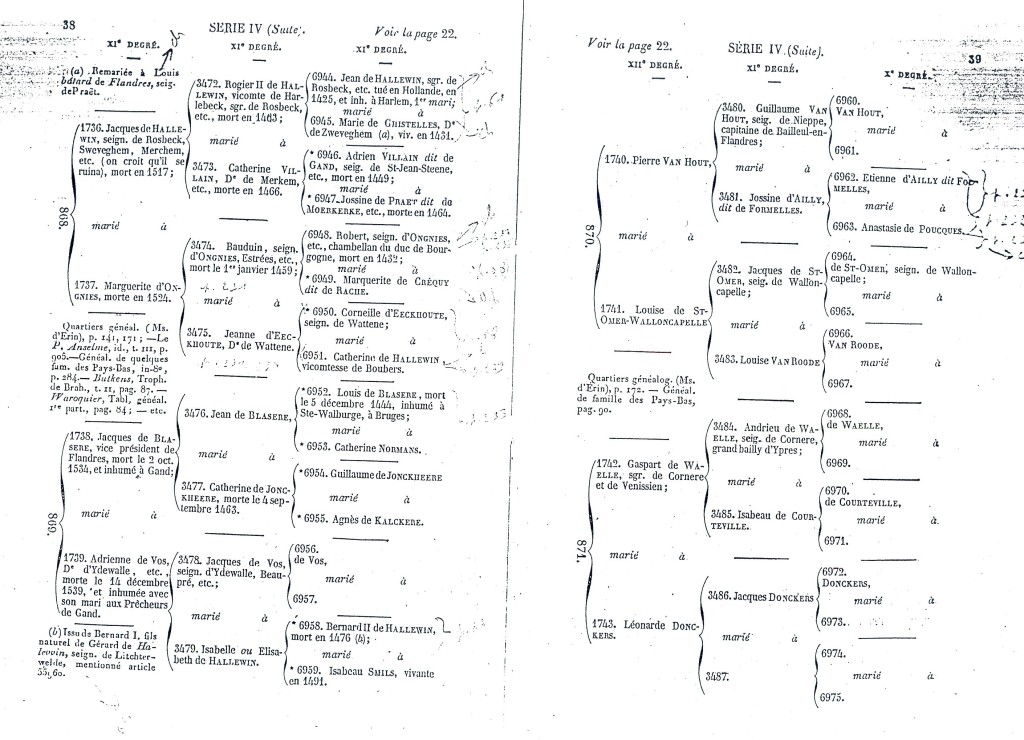 38
SERIE IV (Suite).
Voir la page 22.
XIᵉ DEGRÉ.
XIᵉ DEGRÉ.
XIᵉ DEGRÉ.
(a) Remariée à Louis
bâtard de Flandres, seig.
de Praët.
868.
1736. Jacques de HALLE-
WIN, seign. de Rosbeck,
Sweveghem, Merchem,
etc. (on croit qu'il se
ruina), mort en 1517;
marié à
1737. Marguerite d'ON-
GNIES, morte en 1524.
Quartiers généal. (Ms.
d'Erin), p. 141, 171; —Le
P. Anselme, id., t. III, p.
905.—Généal. de quelques
fam. des Pays-Bas, in-8°,
p. 284.— Butkens, Troph.
de Brab., t. II, pag. 87. —
Waroquier, Tabl. généal.
1ʳᵉ part., pag. 84; — etc.
869.
1738. Jacques de BLA-
SERE, vice président de
Flandres, mort le 2 oct.
1534, et inhumé à Gand;
marié à
1739. Adrienne de Vos,
Dᵉ d'Ydewalle, etc.,
morte le 14 décembre
1539, et inhumée avec
son mari aux Prêcheurs
de Gand.
(b) Issu de Bernard I, fils
naturel de Gérard de Ha-
lewin, seign. de Litchter-
welde, mentionné article
55,60.
3472. Rogier II de HAL-
LEWIN, vicomte de Har-
lebeck, sgr. de Rosbeck,
etc., mort en 1463;
marié à
3473. Catherine VIL-
LAIN, Dᵉ de Merkem,
etc., morte en 1466.
3474. Bauduin, seign.
d'ONGNIES, Estrées, etc.,
mort le 1ᵉʳ janvier 1459;
marié à
3475. Jeanne d'EEC-
KHOUTE, Dᵉ de Wattene.
3476. Jean de BLASERE,
marié à
3477. Catherine de JONC-
KHEERE, morte le 4 sep-
tembre 1463.
3478. Jacques de Vos,
seign. d'Ydewalle, Beau-
pré, etc.;
marié à
3479. Isabelle ou Elisa-
beth de HALLEWIN.
6944. Jean de HALLEWIN, sgr. de
Rosbeck, etc. tué en Hollande, en
1425, et inh. à Harlem, 1ᵉʳ mari;
marié à
6945. Marie de GHISTELLES, Dᵉ
de Zweveghem (a), viv. en 1431.
* 6946. Adrien VILLAIN dit de
GAND, seig. de St-Jean-Steene,
etc., mort en 1449;
marié à
* 6947. Jossine de PRAET dit de
MOERKERKE, etc., morte en 1464.
6948. Robert, seign. d'ONGNIES,
etc., chambellan du duc de Bour-
gogne, mort en 1432;
marié à
* 6949. Marguerite de CRÉQUY
dit de RACHE.
* 6950. Corneille d'EECKHOUTE,
seign. de Wattene;
marié à
6951. Catherine de HALLEWIN,
vicomtesse de Boubers.
* 6952. Louis de BLASERE, mort
le 5 décembre 1444, inhumé à
Ste-Walburge, à Bruges;
marié à
* 6953. Catherine NORMANS.
* 6954. Guillaume de JONCKHEERE
marié à
* 6955. Agnès de KALCKERE.
6956.
de Vos,
marié à
6957.
* 6958. Bernard II de HALLEWIN,
mort en 1476 (b);
marié à
* 6959. Isabeau SMILS, vivante
en 1491.
Voir la page 22.
SÉRIE IV (Suite).
39
XIIᵉ DEGRÉ.
XIᵉ DEGRÉ.
Xᵉ DEGRÉ.
870.
1740. Pierre VAN HOUT,
marié à
1741. Louise de ST-
OMER-WALLONCAPELLE
Quartiers généalog. (Ms.
d'Erin), p. 172. — Généal.
de famille des Pays-Bas,
pag. 90.
871.
1742. Gaspart de WA-
ELLE, sgr. de Cornere
et de Venissien;
marié à
1743. Léonarde DONC-
KERS.
3480. Guillaume VAN
HOUT, seig. de Nieppe,
capitaine de Bailleul-en-
Flandres;
marié à
3481. Jossine d'AILLY,
dit de FORMELLES.
3482. Jacques de ST-
OMER, seig. de Wallon-
capelle;
marié à
3483. Louise VAN ROODE
3484. Andrieu de WA-
ELLE, seig. de Cornere,
grand bailly d'Ypres;
marié à
3485. Isabeau de COUR-
TEVILLE.
3486. Jacques DONCKERS
marié à
3487.
6960.
VAN HOUT,
marié à
6961.
6962. Etienne d'AILLY dit FOR-
MELLES,
marié à
6963. Anastasie de POUCQUES.
6964.
de ST-OMER, seign. de Wallon-
capelle;
marié à
6965.
6966.
VAN ROODE,
marié à
6967.
6968.
de WAELLE,
marié à
6969.
6970.
de COURTEVILLE,
marié à
6971.
6972.
DONCKERS,
marié à
6973.
6974.
marié à
6975.